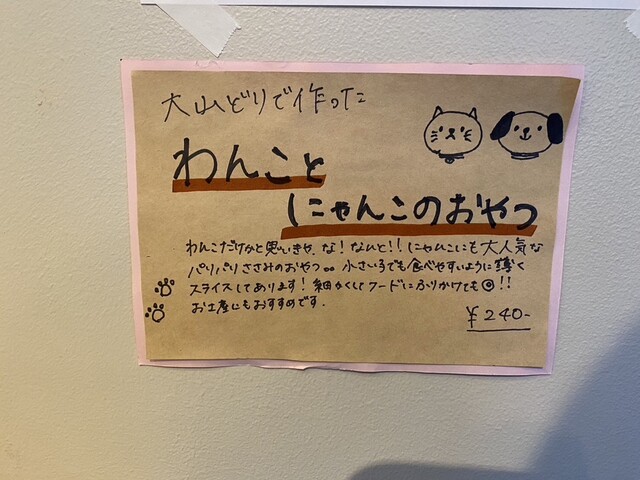 大山どりで作った
わんこと
にゃんこのおやつ
わんこだけかと思いきや、な！なんと！！にゃんこにも大人気な
パリパリささみのおやつ。小さい子でも食べやすいように薄く
スライスしてあります！細かくしてフードにふりかけても◎！！
お土産にもおすすめです。
¥240-